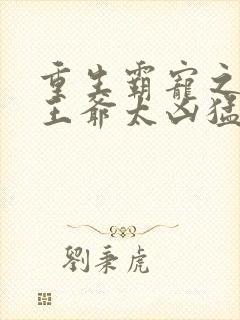 重生霸寵之
王爺太凶猛
劉秉虎